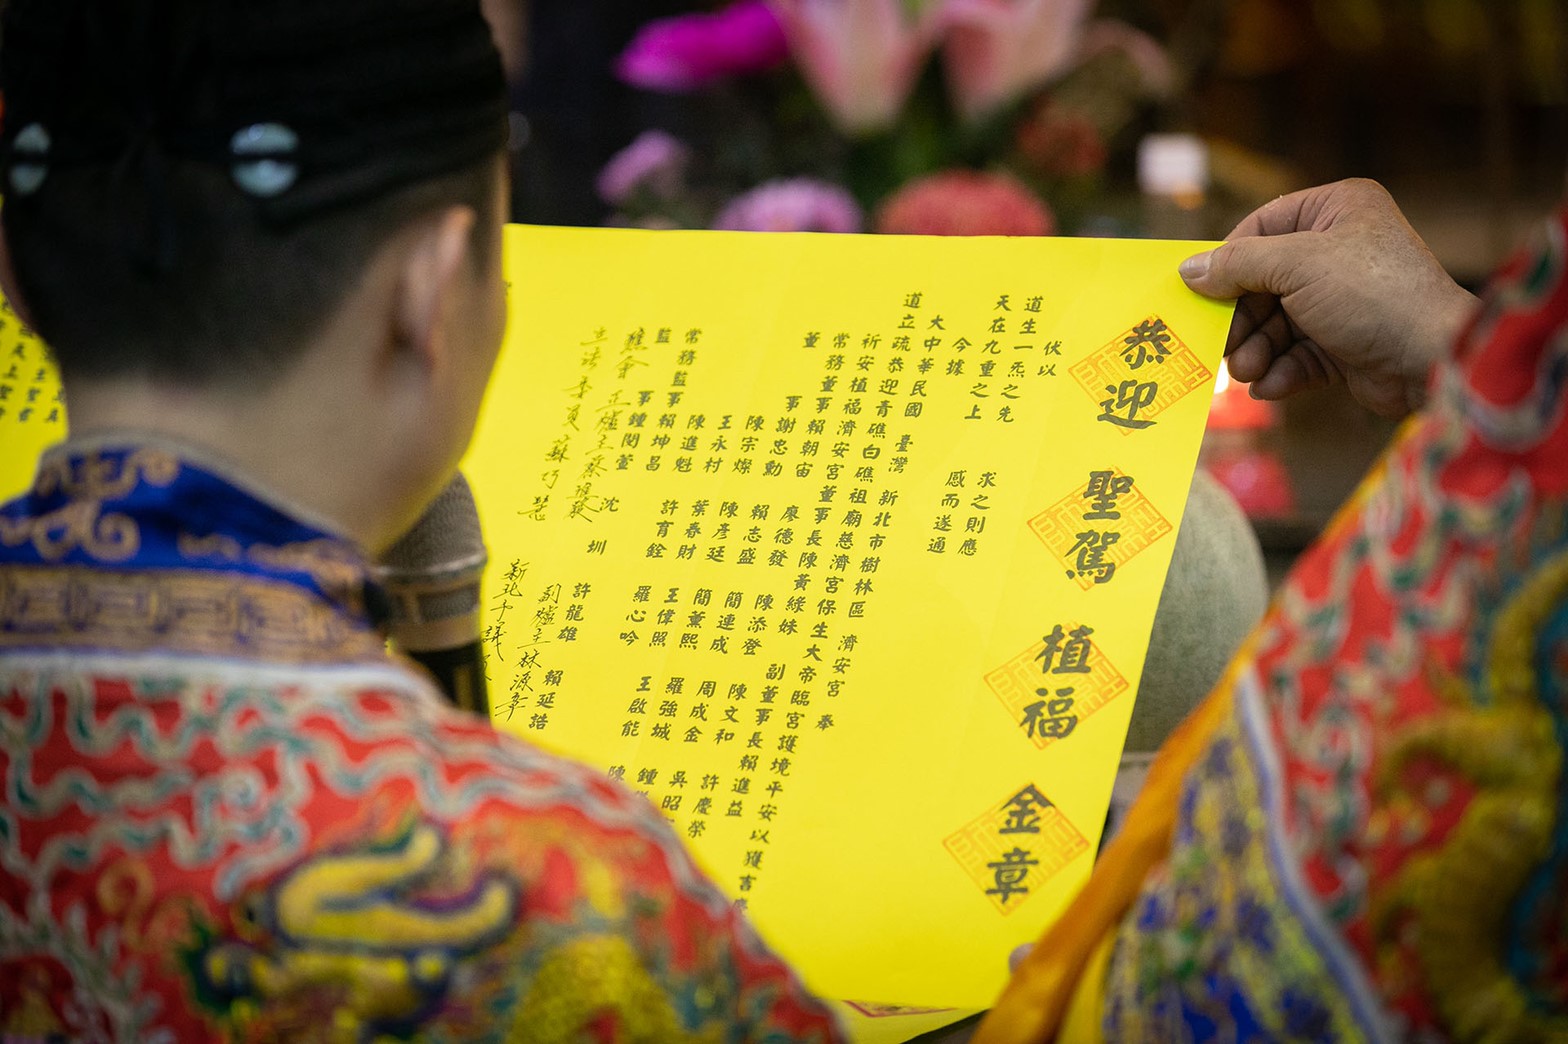 恭迎 聖駕 植福 金章
伏以
道生一炁之先 求之則應
天在九重之上 感而遂通
今據
大中華民國 臺灣 新北市樹林區 濟安宮 奉
道立疏恭迎青礁白礁祖廟慈濟宮保生大帝臨宮護境平安以獲吉
祈安植福濟安宮董事長陳黃綠妹 副董事長賴進益
常務董事賴朝宙 廖德發 陳添登 陳文和 許慶榮
董 事謝忠勳 賴志盛 簡連成 周成金 吳昭
陳宗燦 陳彥廷 簡薰熙 羅強城 鍾
王永村 葉春財 王偉照 王啟能 陳
陳進魁 許育銓 羅心吟
常務監事賴坤昌
監 事鍾閔萱 沈圳 許龍雄 賴延諎
正爐主蔡 副爐主林淑幸
立法委員蘇巧慧 新北市議員